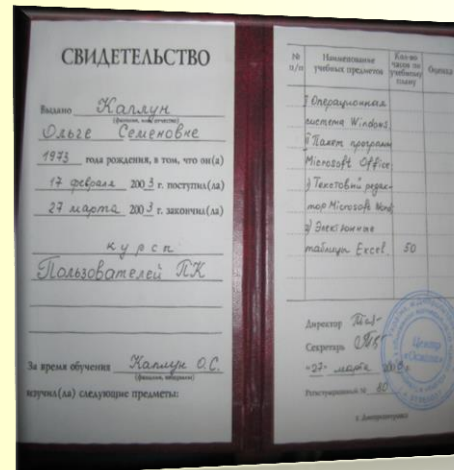 СВИДЕТЕЛЬСТВО
Выдано Каплун
(фамилия, имя, отчество)
Ольге Семеновне
1973 года рождения, в том, что он(а)
17 февраля 2003 г. поступил(ла)
27 марта 2003 г. закончил(ла)
курсы
Пользователей ПК
За время обучения Каплун О.С.
(фамилия, инициалы)
изучил(ла) следующие предметы:
№ п/п
Наименование учебных предметов
Кол-во часов по учебному плану
Оценка
I Операционная
система Windows
II Пакет программ
Microsoft Office:
1) Текстовый редак-
тор Microsoft Word
2) Электронные
таблицы Excel 50
Директор
Секретарь
"27" марта
Регистрационный № 80
г. Днепропетровск
Центр
«Основа»